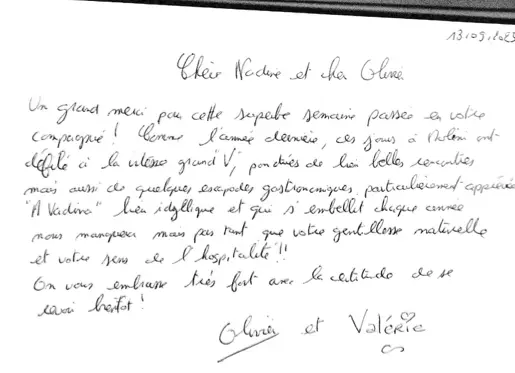 13.09.2023
Chère Nadine et cher Olivier
Un grand merci pour cette superbe semaine passée en votre
compagnie ! Comme l'année dernière, ces jours à ont
défilé à la vitesse grand V, ponctués de bien belles rencontres
mais aussi de quelques escapades gastronomiques, particulièrement appréciées
"A " lieu idyllique et qui s'embellit chaque année
nous manquera mais pas tant que votre gentillesse naturelle
et votre sens de l'hospitalité !!
On vous embrasse très fort avec la certitude de se
revoir bientôt !
Olivier et Valérie